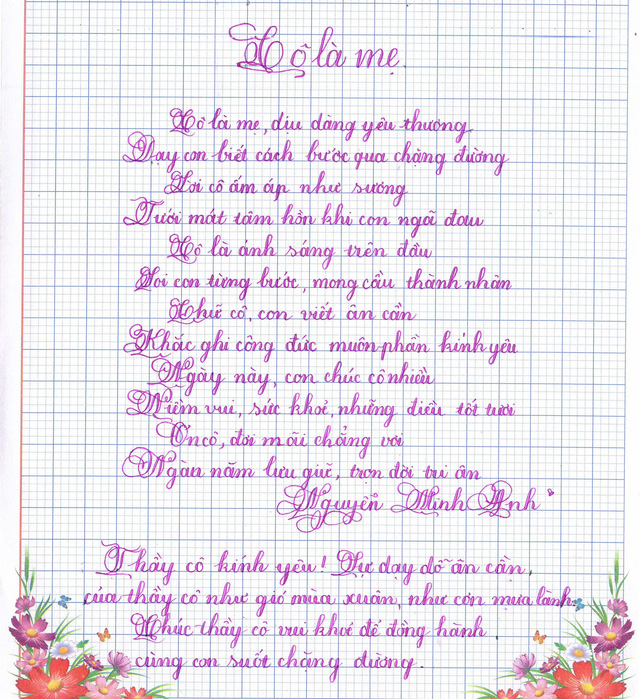 Cô là mẹ.
Cô là mẹ, dịu dàng yêu thương
Dạy con biết cách bước qua chặng đường
Lời cô ấm áp như sương
Tưới mát tâm hồn khi con ngã đau
Cô là ánh sáng trên đầu
Soi con từng bước, mong cầu thành nhân
Chữ cô, con viết ân cần
Khắc ghi công đức muôn phần kính yêu
Ngày này, con chúc cô nhiều
Niềm vui, sức khoẻ, những điều tốt tươi
Ơn cô, đời mãi chẳng vơi
Ngàn năm lưu giữ, trọn đời tri ân
Nguyễn Minh Anh
Thầy cô kính yêu! Sự dạy dỗ ân cần,
của thầy cô như gió mùa xuân, như cơn mưa lành.
Chúc thầy cô vui khoẻ để đồng hành
cùng con suốt chặng đường.